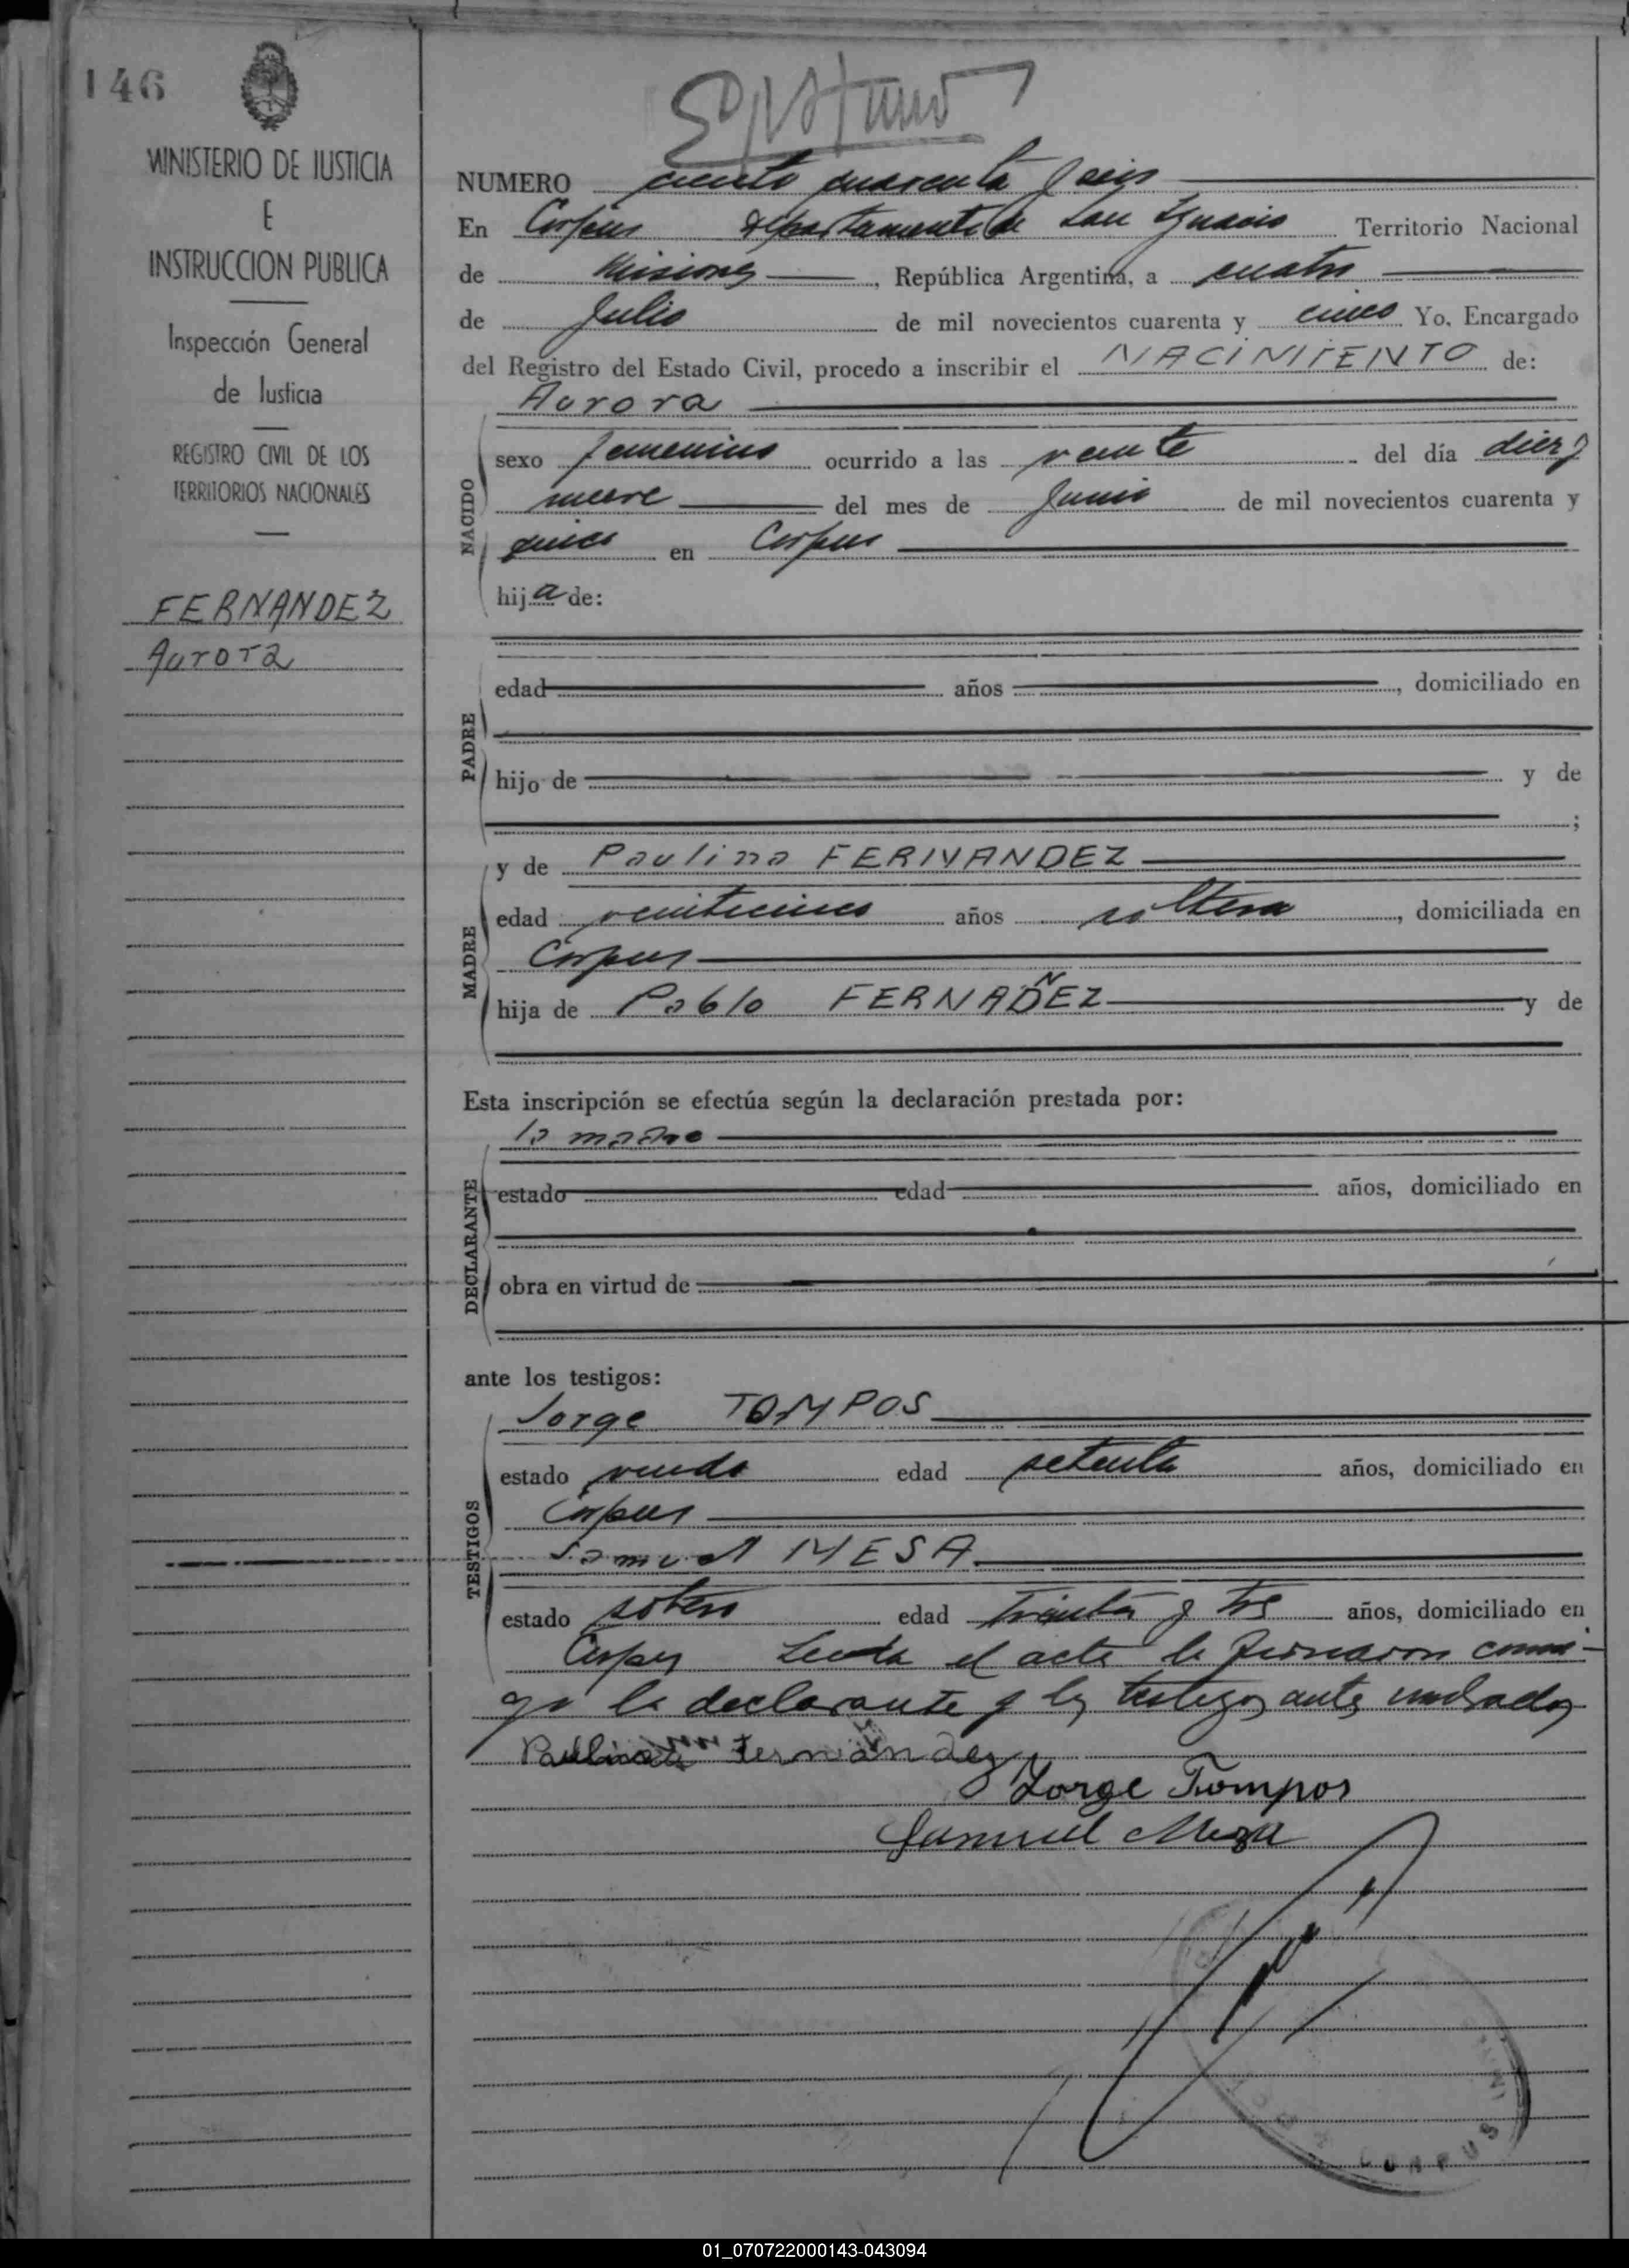 146
MINISTERIO DE JUSTICIA
E
INSTRUCCION PUBLICA
Inspección General
de Justicia
REGISTRO CIVIL DE LOS
TERRITORIOS NACIONALES
FERNANDEZ
Aurora
NUMERO ciento cuarenta y seis
En Corpus Departamento de San Ignacio Territorio Nacional
de Misiones, República Argentina, a cuatro
de Julio de mil novecientos cuarenta y cinco Yo, Encargado
del Registro del Estado Civil, procedo a inscribir el NACIMIENTO de:
Aurora
NACIDO
sexo femenino ocurrido a las veinte del día diez y
nueve del mes de Junio de mil novecientos cuarenta y
cinco en Corpus
hija de:
PADRE
edad años, domiciliado en
hijo de y de
;
MADRE
y de Paulina FERNANDEZ
edad veinticinco años soltera, domiciliada en
Corpus
hija de Pablo FERNAÑEZ y de
Esta inscripción se efectúa según la declaración prestada por:
la madre
DECLARANTE
estado edad años, domiciliado en
obra en virtud de
ante los testigos:
TESTIGOS
Jorge TOMPOS
estado viudo edad setenta años, domiciliado en
Corpus
Samuel MESA
estado soltero edad treinta y tres años, domiciliado en
Corpus Leida el acta la firmaron conmi-
go la declarante y los testigos antes nombrados
Paulina Fernández
Jorge Tompos
Samuel Meza
CORPUS
01_070722000143-043094